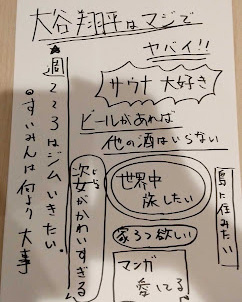 大谷翔平はマジで
ヤバイ!!
サウナ 大好き
ビールがあれば
他の酒はいらない
世界中
旅したい
島に住みたい
家3つ欲しい
マンガ
愛してる
次女がかわいすぎる
週2〜3はジム いきたい。
すいみんは何より 大事